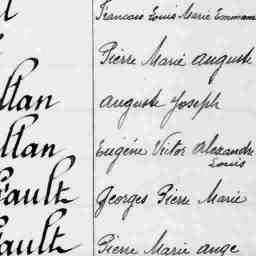 Francois Louis Marie Emmanu
Pierre Marie Auguste
llan auguste Joseph
llan Eugéne Victor Alexandre
Louis
Gault Georges Pierre Marie
Gault Pierre Marie ange